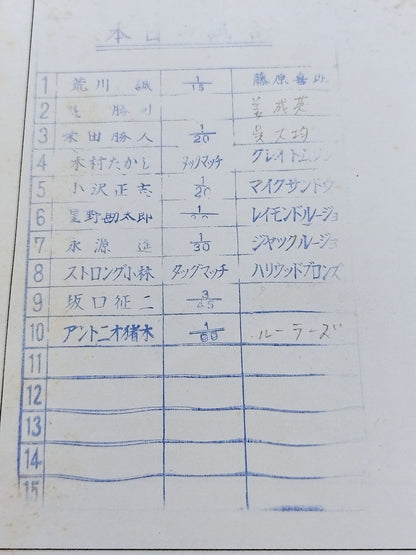 本日
1 荒川 誠 1/15 藤原喜
2 勝 姜成英
3 栗田勝人 1/20 呉大均
4 木村たかし タッグマッチ グレイト
5 小沢正志 1/20 マイクサンドウ
6 星野勘太郎 レイモンドルージョ
7 永源 遥 1/30 ジャックルージョ
8 ストロング小林 タッグマッチ ハリウッドブロンズ
9 坂口征二 3/45
10 アントニオ猪木 1/60 ルーラーズ
11
12
13
14
15